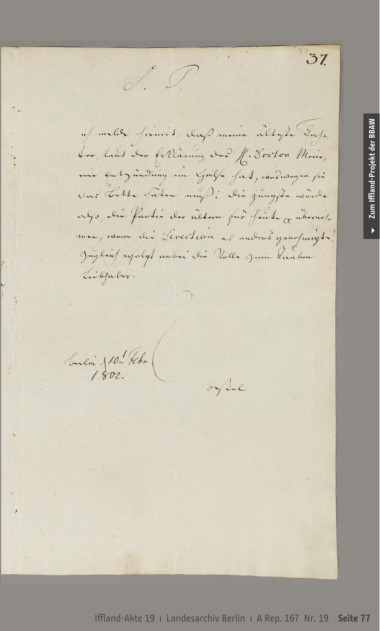 37.
P. P.
ich melde hiemit, daß meine älteste Toch-
ter, laut der Erklärung des H. Doctor
eine entzündung im Halse hat, weswegen sie
das Bette hüten muß; die jüngste würde
also die Partie der ältern für heute überneh-
men, wenn die Direction es anders genehmigte.
Zugleich erfolgt anbei die Rolle zum tauben
Liebhaber.
Berlin d. 10t Febr
1802.
Zum Iffland-Projekt der BBAW
Iffland-Akte 19 | Landesarchiv Berlin | A Rep. 167 Nr. 19 Seite 77